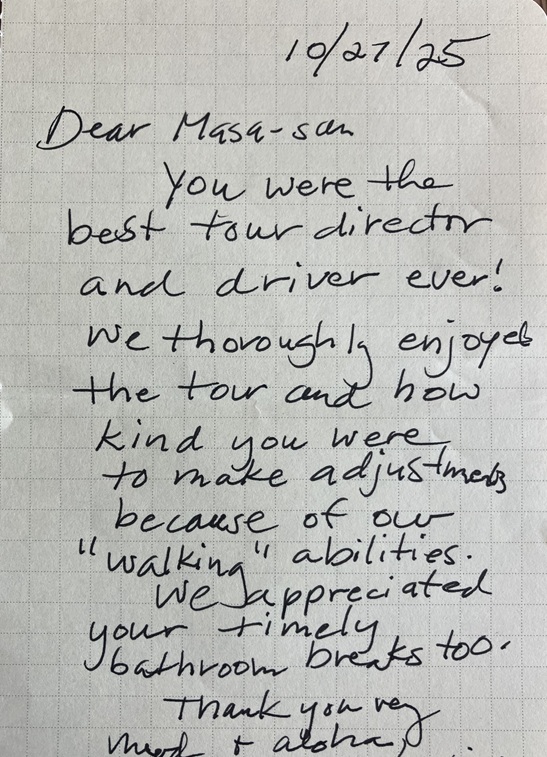 10/27/25
Dear Masa-san
You were the
best tour director
and driver ever!
We thoroughly enjoyed
the tour and how
kind you were
to make adjustments
because of our
"walking" abilities.
We appreciated
your timely
bathroom breaks too.
Thank you very
much + aloha,